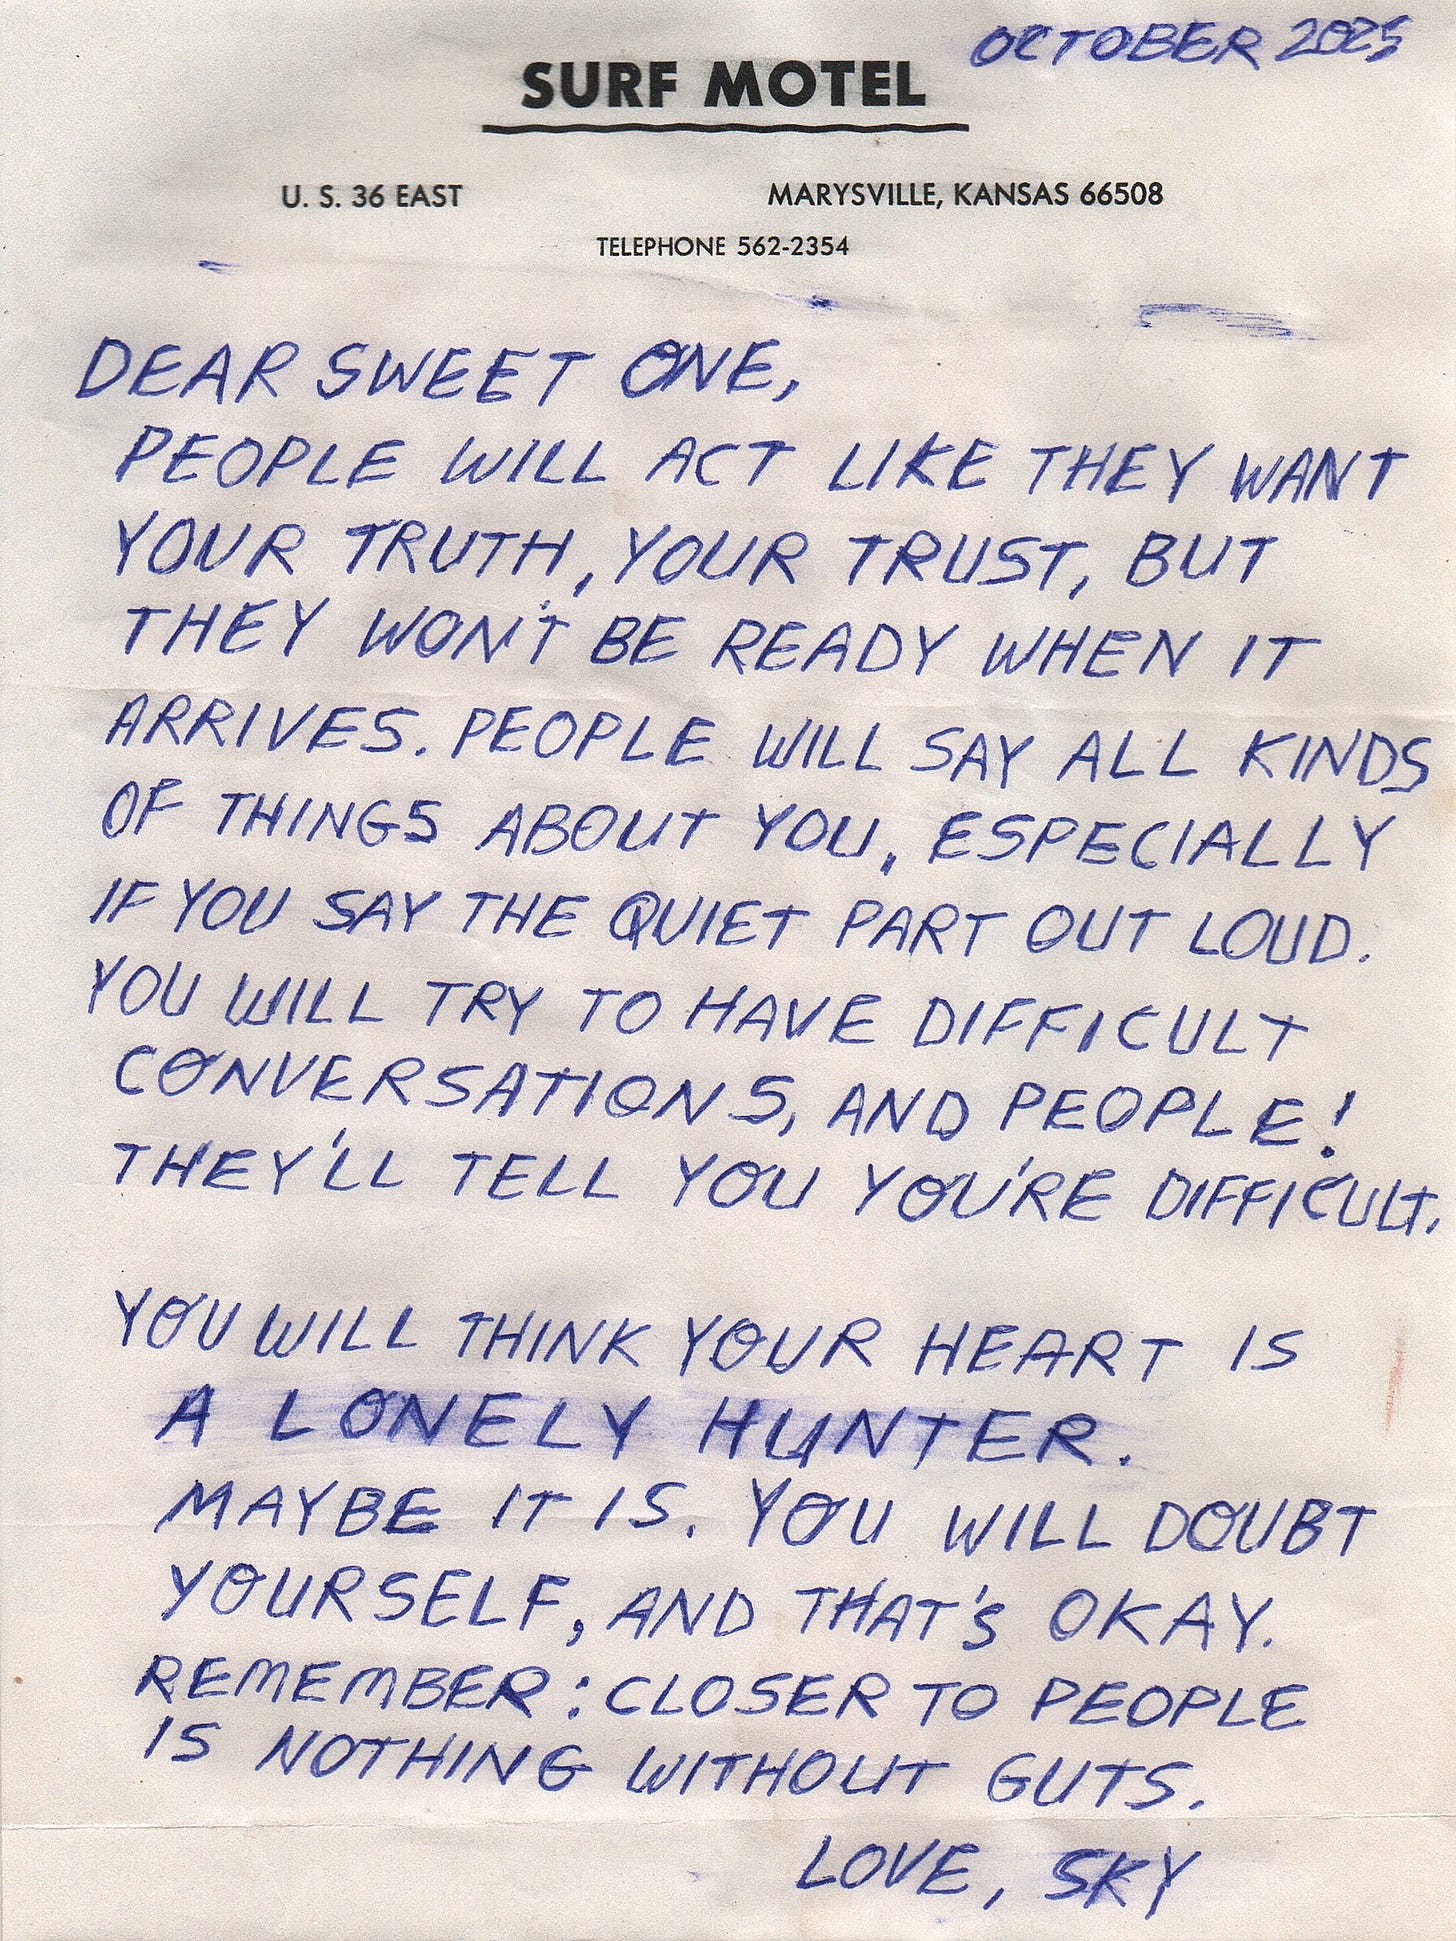 OCTOBER 2025
SURF MOTEL
U. S. 36 EAST MARYSVILLE, KANSAS 66508
TELEPHONE 562-2354
DEAR SWEET ONE,
PEOPLE WILL ACT LIKE THEY WANT
YOUR TRUTH, YOUR TRUST, BUT
THEY WON'T BE READY WHEN IT
ARRIVES. PEOPLE WILL SAY ALL KINDS
OF THINGS ABOUT YOU, ESPECIALLY
IF YOU SAY THE QUIET PART OUT LOUD.
YOU WILL TRY TO HAVE DIFFICULT
CONVERSATIONS, AND PEOPLE!
THEY'LL TELL YOU YOU'RE DIFFICULT.
YOU WILL THINK YOUR HEART IS
A LONELY HUNTER.
MAYBE IT IS. YOU WILL DOUBT
YOURSELF, AND THAT'S OKAY.
REMEMBER: CLOSER TO PEOPLE
IS NOTHING WITHOUT GUTS.
LOVE, SKY